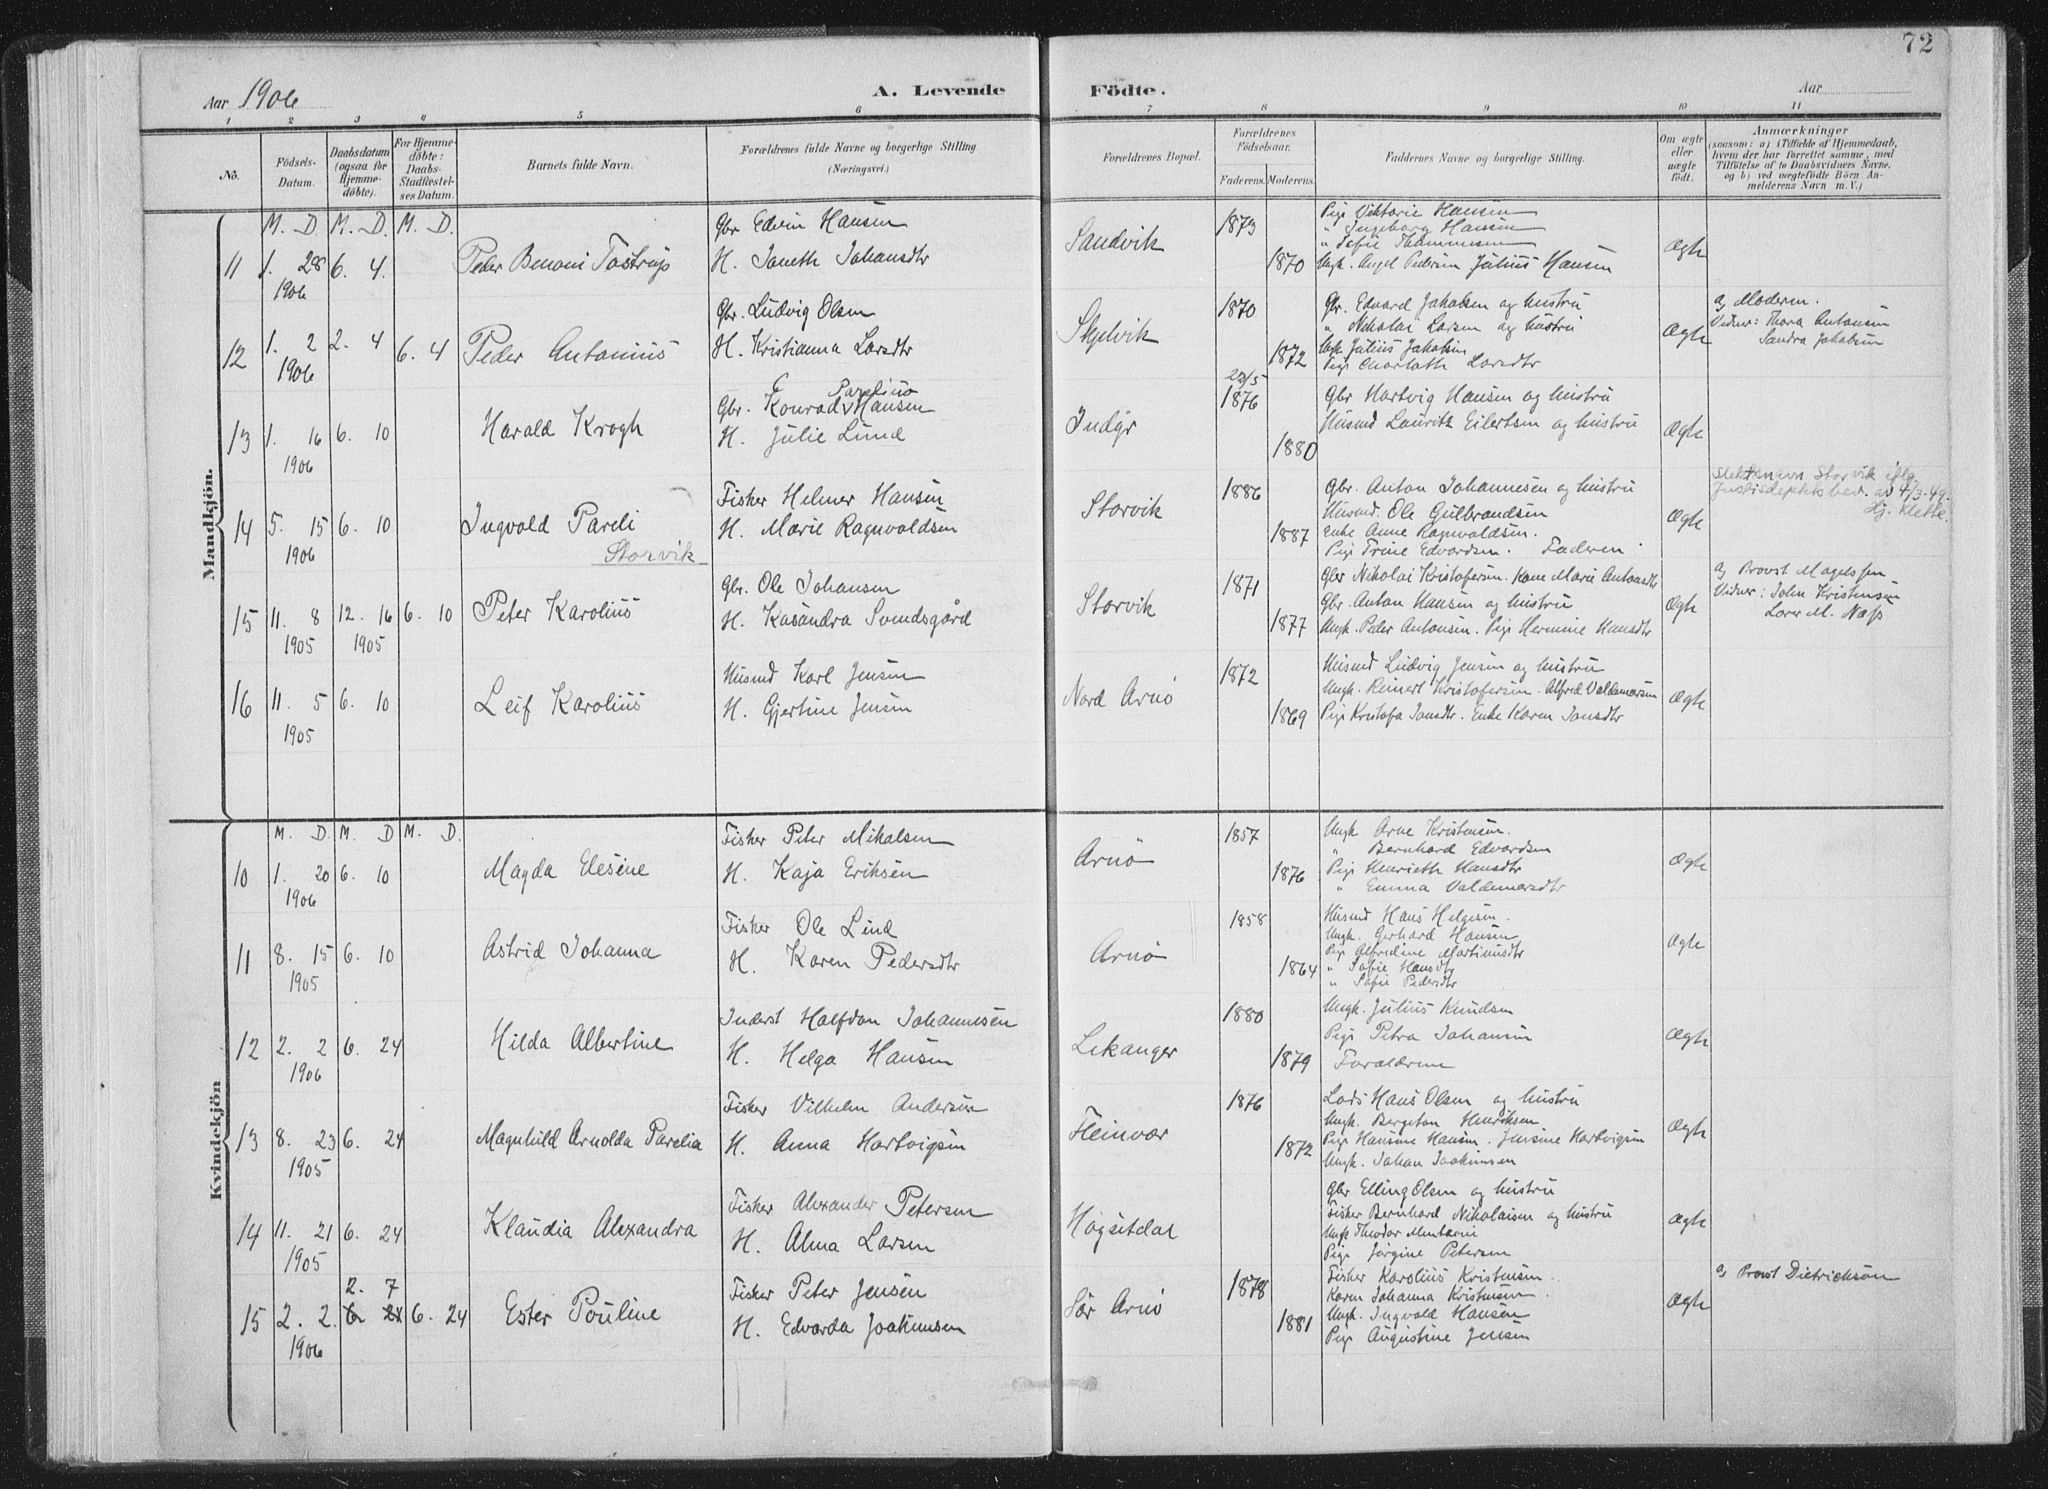 72
Aar 1906
A. Levende
Födte.
Aar
1 2 3 4 5 6 7 8 9 10 11
No.
Födsels-Datum.
Daabsdatum (ogsaa for Hjemmedöbte).
For Hjemmedöbte: Daabs-Stadfæstelses Datum.
Barnets fulde Navn.
Forældrenes fulde Navne og borgerlige Stilling. (Næringsvei.)
Forældrenes Bopæl.
Forældrenes Födselsaar.
Faderens. Moderens.
Faddernes Navne og borgerlige Stilling.
Om ægte eller uægte födt.
Anmærkninger
(saasom: a) i Tilfælde af Hjemmedaab, hvem der har forrettet samme, med Tilföielse af to Daabsvidners Navne, og b) ved uægtefödte Börn Anmelderens Navn m. V.)
Mandkjön.
M. D. M. D. M. D.
11 1. 28 1906 6. 4.
Peder Benoni Tostrup
Gbr Edvin Hansen
H. Janeth Johansdtr
Sandvik
1873 1870
Pige Viktorie Hansen
" Ingeborg Hansen
" Sofie Thommesen
Ungk. Angel Pedersen Julius Hansen
Ægte
12 1. 2 1906 2. 4 6. 4
Peder Antonius
Gbr. Ludvig Olsen
H. Kristianna Larsdtr
Skjelvik
1870 1872
Gbr. Edvard Jakobsen og hustru
" Nikolai Larsen og hustru
Ungk Julius Jakobsen
Pige Charloth Larsdtr
Ægte
af Moderen.
Vidner: Thora Antonsen
Sandra Jakobsen
13 1. 16 1906 6. 10
Harald Krogh
Parelius
Gbr. Konrad Hansen
H. Julie Lund
Indyr
23/5
1876 1880
Gbr Hartvig Hansen og hustru
Husmd Lauritz Eilertsen og hustru
Ægte
14 5. 15 1906 6. 10
Ingvald Pareli
Storvik
Fisker Helmer Hansen
H. Marie Ragnvaldsen
Storvik
1886 1887
Gbr. Anton Johannesen og hustru
Husmd. Ole Gulbrandsen
Enke Anne Ragnvaldsen.
Pige Trine Edvardsen. Faderen
Ægte
Slektsnavn Storvik iflg.
Justisdeptsbev. av 4/3-49.
Hj. Klette.
15 11. 8 1905 12. 16 1905 6. 10
Peter Karolius
Gbr. Ole Johansen
H. Kasandra Svendsgård
Storvik
1871 1877
Gbr Nikolai Kristofersen. Kone Marie Antonsdtr
Gbr. Anton Hansen og hustru
Ungk. Peder Antonsen. Pige Hermine Hansdtr
Ægte
af Provst Magelssen
Vidner: John Kristensen
Lorer M. Næss
16 11. 5 1905 6. 10
Leif Karolius
Husmd Karl Jensen
H. Gjertine Jensen
Nord Arnö
1872 1869
Husmd Ludvig Jensen og hustru
Ungk. Reinert Kristofersen. Alfred Valdemarsen
Pige Kristofa Jansdtr. Enke Karen Jansdtr
Ægte
Kvindekjön
M. D. M. D M. D.
10 1. 20 1906 6. 10
Magda Elesine
Fisker Peter Mikalsen
H. Kaja Eriksen
Arnö
1857 1876
Ungk Arne Kristensen.
" Bernhard Edvardsen
Pige Henrieth Hansdtr
" Emma Valdemarsdtr
Ægte
11 8. 15 1905 6. 10
Astrid Johanna
Fisker Ole Lund
H. Karen Pedersdtr
Arnö
1858 1864
Husmd Hans Helgesen.
Ungk. Gerhard Hansen
Pige Alfredine Martinusdtr
" Sofie Hansdtr
" Sofie Pedersdtr
Ægte
12 2. 2 1906 6. 24
Hilda Albertine
Inderst Halfdan Johannesen
H. Helga Hansen
Lekanger
1880 1879
Ungk. Julius Knudsen
Pige Petra Johansen
Forældrene
Ægte
13 8. 23 1905 6. 24
Magnhild Arnolda Parelia
Fisker Vilhelm Andersen
H. Anna Hartvigsen
Fleinvær
1876 1872
Lods Hans Olsen og hustru
Ungk. Bergeton Henriksen
Pige Hansine Hansen. Jensine Hartvigsen
Ungk. Johan Joakimsen
Ægte
14 11. 21 1905 6. 24
Klaudia Alexandra
Fisker Alexander Petersen
H. Alma Larsen
Högsetdal
Gbr Elling Olsen og hustru
Fisker Bernhard Nikolaisen og hustru
Ungk Theodor Mentzoni
Pige Jörgine Petersen
Ægte
15 2. 2. 1906 2. 7 6. 24 6. 24
Ester Pouline
Fisker Peter Jensen
H. Edvarda Joakimsen
Sör Arnö
1878 1881
Fisker Karolius Kristensen.
Karen Johanna Kristensen.
Ungk. Ingvald Hansen
Pige Augustine Jensen
Ægte
af Provst Dietrichson